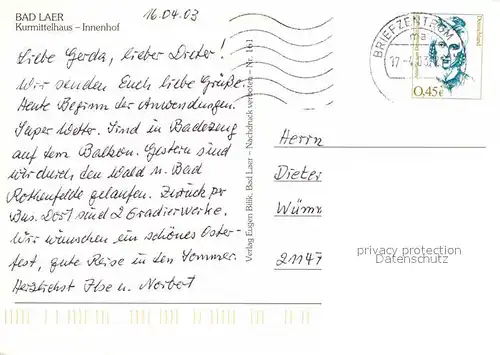 BAD LAER
Kurmittelhaus – Innenhof
16.04.03
Liebe Gerda, lieber Dieter!
Wir senden Euch liebe Grüße.
Heute Beginn der Anwendungen.
Super Wetter. Sind in Badezeug
auf dem Balkon. Gestern sind
wir durch den Wald n. Bad
Rothenfelde gelaufen. Zurück per
Bus. Dort sind 2 Gradierwerke.
Wir wünschen ein schönes Oster-
fest, gute Reise in den Sommer.
Herzlichst Ilse u. Norbert
Verlag Eugen Bülk, Bad Laer – Nachdruck verboten – Nr. 161
BRIEFZENTRUM
ma
17-4.03
Deutschland
0,45€
Herrn
Dieter
Wüm
21147
privacy protection
Datenschutz